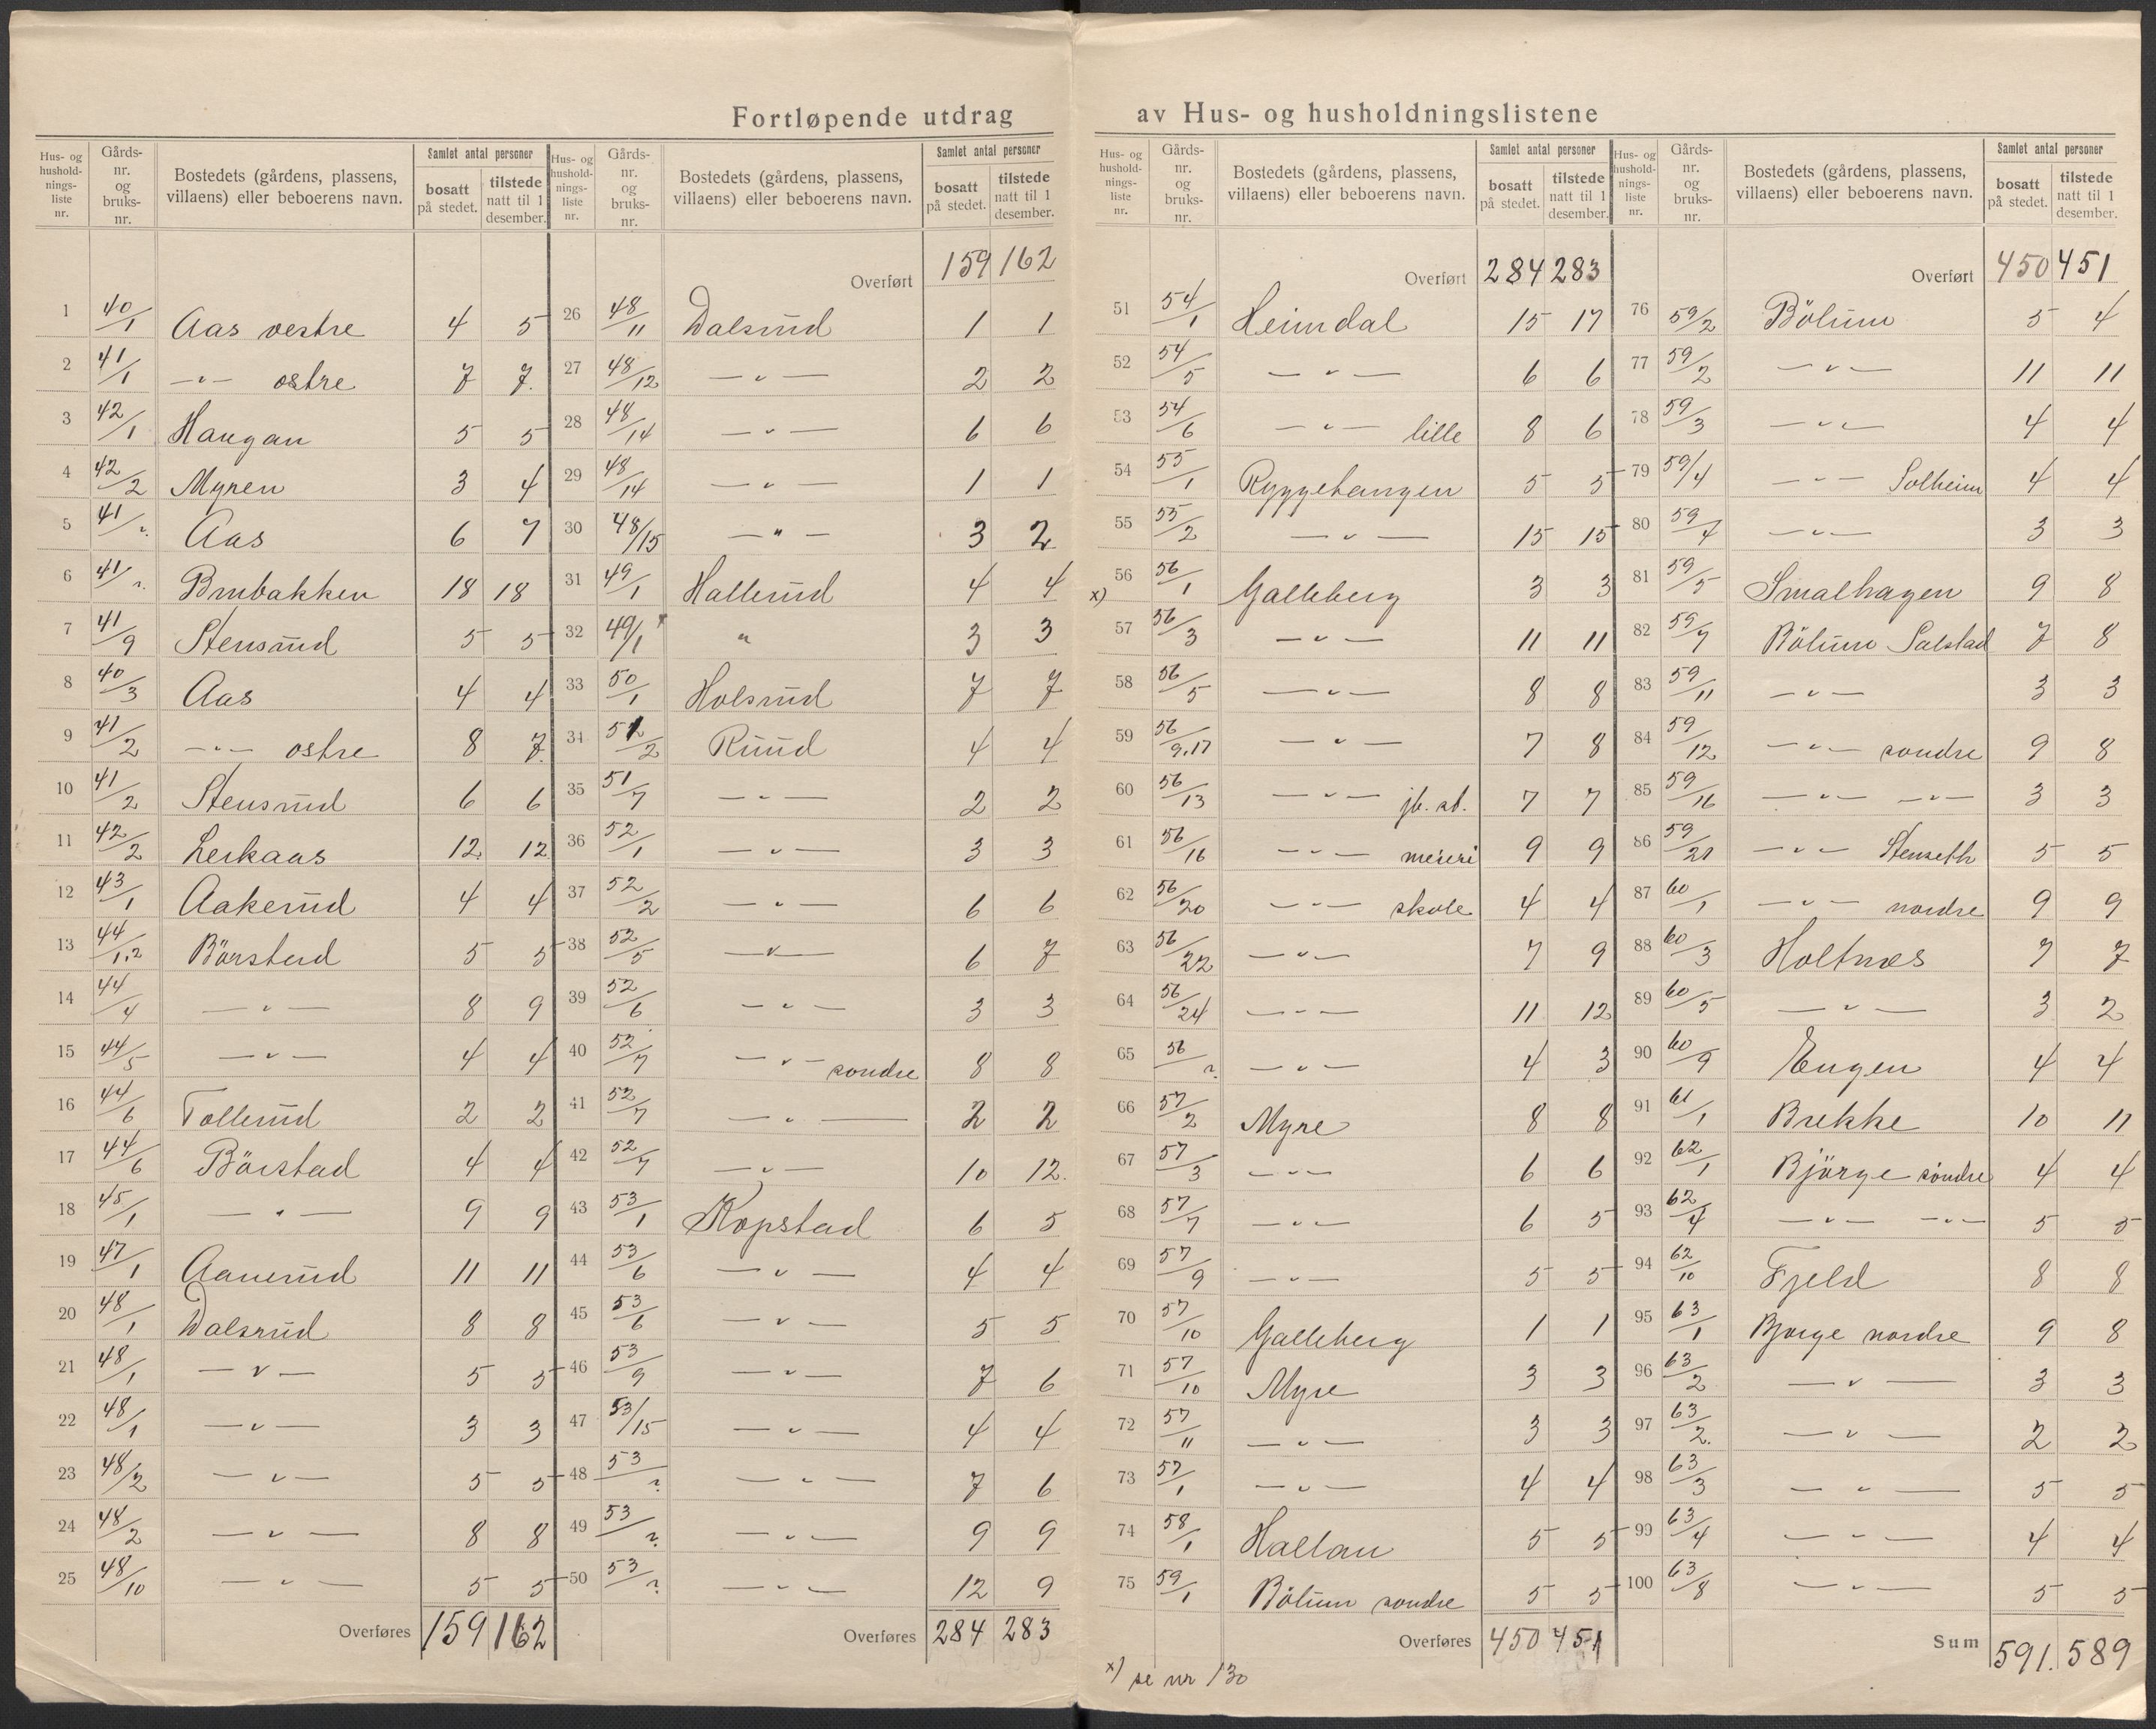 Fortløpende utdrag av Hus- og husholdningslistene
Hus- og husholdningsliste nr. | Gårds-nr. og bruks-nr. | Bostedets (gårdens, plassens, villaens) eller beboerens navn. | Samlet antal personer: bosatt på stedet. | tilstede natt til 1 desember.
1 40/1 Aas vestre 4 5
2 41/1 —〃— østre 7 7.
3 42/1 Haugan 5 5
4 42/2 Myren 3 4
5 41/?. Aas 6 7
6 41/?. Brubakken 18 18
7 41/9 Stensrud 5 5
8 40/3 Aas 4 4
9 41/2 —〃— østre 8 7.
10 41/2 Stensrud 6 6
11 42/2 Lerkaas 12 12
12 43/1 Aakerud 4 4
13 44/1.2 Börsterd 5 5
14 44/4 —〃— 8 9
15 44/5 —〃— 4 4
16 44/6 Tollerud 2 2
17 44/6 Börstad 4 4
18 45/1 —〃— 9 9
19 47/1 Aanerud 11 11
20 48/1 Dalsrud 8 8
21 48/1 —〃— 5 5
22 48/1 —〃— 3 3
23 48/2 —〃— 5 5
24 48/2 —〃— 8 8
25 48/10 —〃— 5 5
Overføres 159 162
Hus- og husholdningsliste nr. | Gårds-nr. og bruks-nr. | Bostedets (gårdens, plassens, villaens) eller beboerens navn. | Samlet antal personer: bosatt på stedet. | tilstede natt til 1 desember.
Overført 159 162
26 48/11 Dalsrud 1 1
27 48/12 —〃— 2 2
28 48/14 —〃— 6 6
29 48/14 —〃— 1 1
30 48/15 —〃— 3 2
31 49/1 Hallerud 4 4
32 49/1 〃 3 3
33 50/1 Holsrud 7 7
34 51/2 Ruud 4 4
35 51/7 —〃— 2 2
36 52/1 —〃— 3 3
37 52/2 —〃— 6 6
38 52/5 —〃— 6 7
39 52/6 —〃— 3 3
40 52/7 —〃— søndre 8 8
41 52/7 —〃— 2 2
42 52/7 —〃— 10 12.
43 53/1 Kopstad 6 5
44 53/6 —〃— 4 4
45 53/6 —〃— 5 5
46 53/9 —〃— 7 6
47 53/15 —〃— 4 4
48 53/? —〃— 7 6
49 53/?. —〃— 9 9
50 53/? —〃— 12 9
Overføres 284 283
Hus- og husholdningsliste nr. | Gårds-nr. og bruks-nr. | Bostedets (gårdens, plassens, villaens) eller beboerens navn. | Samlet antal personer: bosatt på stedet. | tilstede natt til 1 desember.
Overført 284 283
51 54/1 Heimdal 15 17
52 54/5 —〃— 6 6
53 54/6 —〃— lille 8 6
54 55/1 Ryggehaugen 5 5
55 55/2 —〃— 15 15
x) 56 56/1 Galleberg 3 3
57 56/3 —〃— 11 11
58 56/5 —〃— 8 8
59 56/9.17 —〃— 7 8
60 56/13 —〃— jb. st. 7 7
61 56/16 —〃— meieri 9 9
62 56/20 —〃— skole 4 4
63 56/22 —〃— 7 9
64 56/24 —〃— 11 12
65 56/?. —〃— 4 3
66 57/2 Myre 8 8
67 57/3 —〃— 6 6
68 57/7 —〃— 6 5
69 57/9 —〃— 5 5
70 57/10 Galleberg 1 1
71 57/10 Myre 3 3
72 57/11 —〃— 3 3
73 57/1 —〃— 4 4
74 58/1 Hallan 5 5
75 59/1 Bölum søndre 5 5
Overføres 450 451
x) se nr 130
Hus- og husholdningsliste nr. | Gårds-nr. og bruks-nr. | Bostedets (gårdens, plassens, villaens) eller beboerens navn. | Samlet antal personer: bosatt på stedet. | tilstede natt til 1 desember.
Overført 450 451
76 59/2 Bölum 5 4
77 59/2 —〃— 11 11
78 59/3 —〃— 4 4
79 59/4 —〃— Solheim 4 4
80 59/4 —〃— 3 3
81 59/5 Smalhagen 9 8
82 59/7 Bölum Solstad 7 8
83 59/11 —〃— 3 3
84 59/12 —〃— søndre 9 8
85 59/16 —〃— —〃— 3 3
86 59/21 —〃— Stenseth 5 5
87 60/1 —〃— nordre 9 9
88 60/3 Holtnæs 7 7
89 60/5 —〃— 3 2
90 60/9 Engen 4 4
91 61/1 Brekke 10 11
92 62/1 Bjørge søndre 4 4
93 62/4 —〃— —〃— 5 5
94 62/10 Fjeld 8 8
95 63/1 Bjørge nordre 9 8
96 63/2 —〃— 3 3
97 63/2. —〃— 2 2
98 63/3 —〃— 5 5
99 63/4 —〃— 4 4
100 63/8 —〃— 5 5
Sum 591. 589